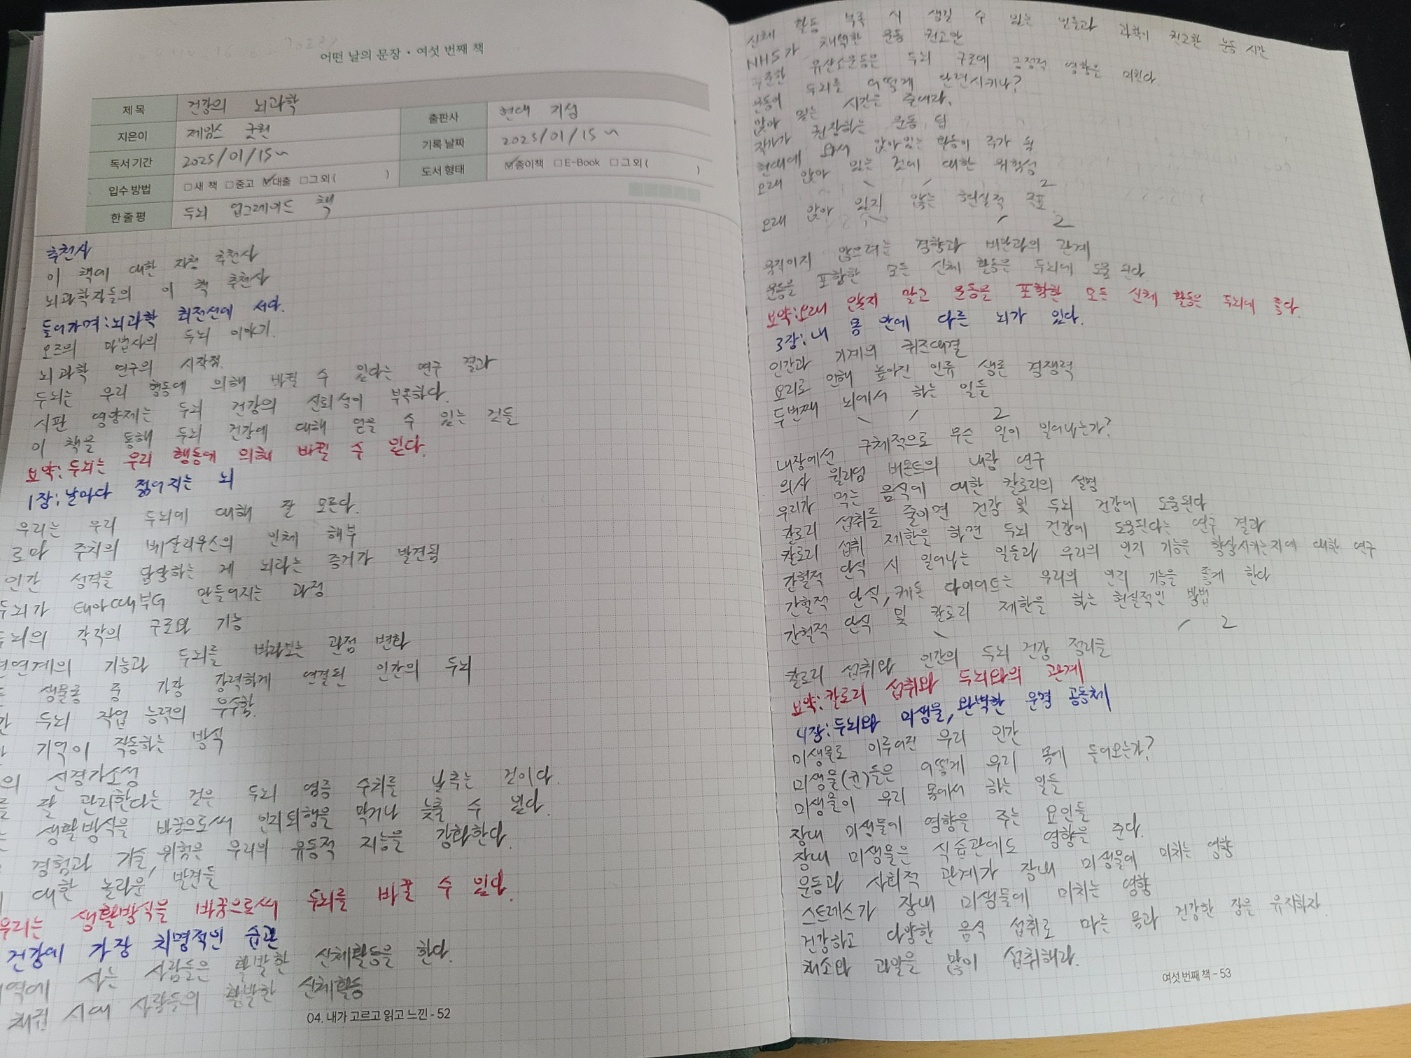 어떤 날의 문장 • 여섯 번째 책
제목 건강의 뇌과학
출판사 현대 지성
지은이 제임스 굿윈
기록 날짜 2025/01/15~
독서 기간 2025/01/15~
도서 형태 ☑종이책 □E-Book □그 외 ( )
입수 방법 □새 책 □중고 ☑대출 □그 외 ( )
한 줄 평 두뇌 업그레이드 책
추천사
이 책에 대한 추천사
뇌과학자들의 이 책 추천사
들어가며:뇌과학 최전선에 서다.
오즈의 마법사의 두뇌 이야기.
뇌과학 연구의 시작점.
두뇌는 우리 행동에 의해 바뀔 수 있다는 연구 결과
시판 영양제는 두뇌 건강의 신뢰성이 부족하다.
이 책을 통해 두뇌 건강에 대해 얻을 수 있는 것들
요약:두뇌는 우리 행동에 의해 바뀔 수 있다.
1장:날마다 젊어지는 뇌
우리는 우리 두뇌에 대해 잘 모른다.
로마 주치의 베살리우스의 인체 해부
인간 성격을 담당하는 게 뇌라는 증거가 발견됨
두뇌가 태아때부터 만들어지는 과정
두뇌의 각각의 구조와 기능
기능과 두뇌를 바라보는 관점 변화
생물종 중 가장 강력하게 연결된 인간의 두뇌
두뇌 작업 능력의 우수함.
기억이 작동하는 방식
의 신경가소성
잘 관리한다는 것은 두뇌 염증 수치를 낮추는 것이다.
생활방식을 바꿈으로써 인지퇴행을 막거나 늦출 수 있다.
경험과 기술, 위험은 우리의 유동적 지능을 강화한다.
대한 놀라운 발견들
우리는 생활방식을 바꿈으로써 두뇌를 바꿀 수 있다.
건강에 가장 치명적인 습관
사는 사람들은 활발한 신체활동을 한다.
채집 시대 사람들의 활발한 신체활동
04. 내가 고르고 읽고 느낀 - 52
신체 활동 부족 시 생길 수 있는 일들과 과학이 권고한 운동 시간
NHS가 채택한 운동 권고안
꾸준한 유산소운동은 두뇌 구조에 긍정적 영향을 미친다
운동이 두뇌를 어떻게 단련시키나?
앉아 있는 시간을 줄여라.
작가가 권장하는 운동 팁
현대에 와서 앉아있는 활동이 증가 함
오래 앉아 있는 것에 대한 위험성
〃 2
오래 앉아 있지 않는 현실적 목표
〃 2
움직이지 않으려는 경향과 비만과의 관계
운동을 포함한 모든 신체 활동은 두뇌에 도움 된다
요약:오래 앉지 말고 운동을 포함한 모든 신체 활동은 두뇌에 좋다.
3장:내 몸 안에 다른 뇌가 있다.
인간과 기계의 퀴즈대결
요리로 인해 높아진 인류 생존 경쟁력
두번째 뇌에서 하는 일들
〃 2
내장에선 구체적으로 무슨 일이 일어나는가?
의사 윌리엄 버몬트의 내장 연구
우리가 먹는 음식에 대한 칼로리의 설명
칼로리 섭취를 줄이면 건강 및 두뇌 건강에 도움된다
칼로리 섭취 제한을 하면 두뇌 건강에 도움된다는 연구 결과
간헐적 단식 시 일어나는 일들과 우리의 인지 기능을 향상시키는지에 대한 연구
간헐적 단식, 케톤 다이어트는 우리의 인지 기능을 좋게 한다
간헐적 단식 및 칼로리 제한을 하는 현실적인 방법
〃 2
칼로리 섭취와 인간의 두뇌 건강 정리글
요약:칼로리 섭취와 두뇌와의 관계
4장:두뇌와 미생물, 완벽한 운명 공동체
미생물로 이루어진 우리 인간
미생물(균)들은 어떻게 우리 몸에 들어오는가?
미생물이 우리 몸에서 하는 일들
장내 미생물에 영향을 주는 요인들
장내 미생물은 식습관에도 영향을 준다.
운동과 사회적 관계가 장내 미생물에 미치는 영향
스트레스가 장내 미생물에 미치는 영향
건강하고 다양한 음식 섭취로 마른 몸과 건강한 장을 유지하자
채소와 과일을 많이 섭취해라.
여섯 번째 책 - 53